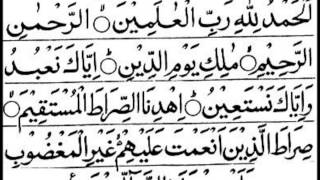 اَلْحَمْدُ لِلّٰهِ رَبِّ الْعٰلَمِيْنَ ۙ الرَّحْمٰنِ
الرَّحِيْمِ ۙ مٰلِكِ يَوْمِ الدِّيْنِ ؕ اِيَّاكَ نَعْبُدُ
وَاِيَّاكَ نَسْتَعِيْنُ ؕ اِهْدِنَا الصِّرَاطَ الْمُسْتَقِيْمَ ۙ
صِرَاطَ الَّذِيْنَ اَنْعَمْتَ عَلَيْهِمْ ۙ غَيْرِ الْمَغْضُوْبِ